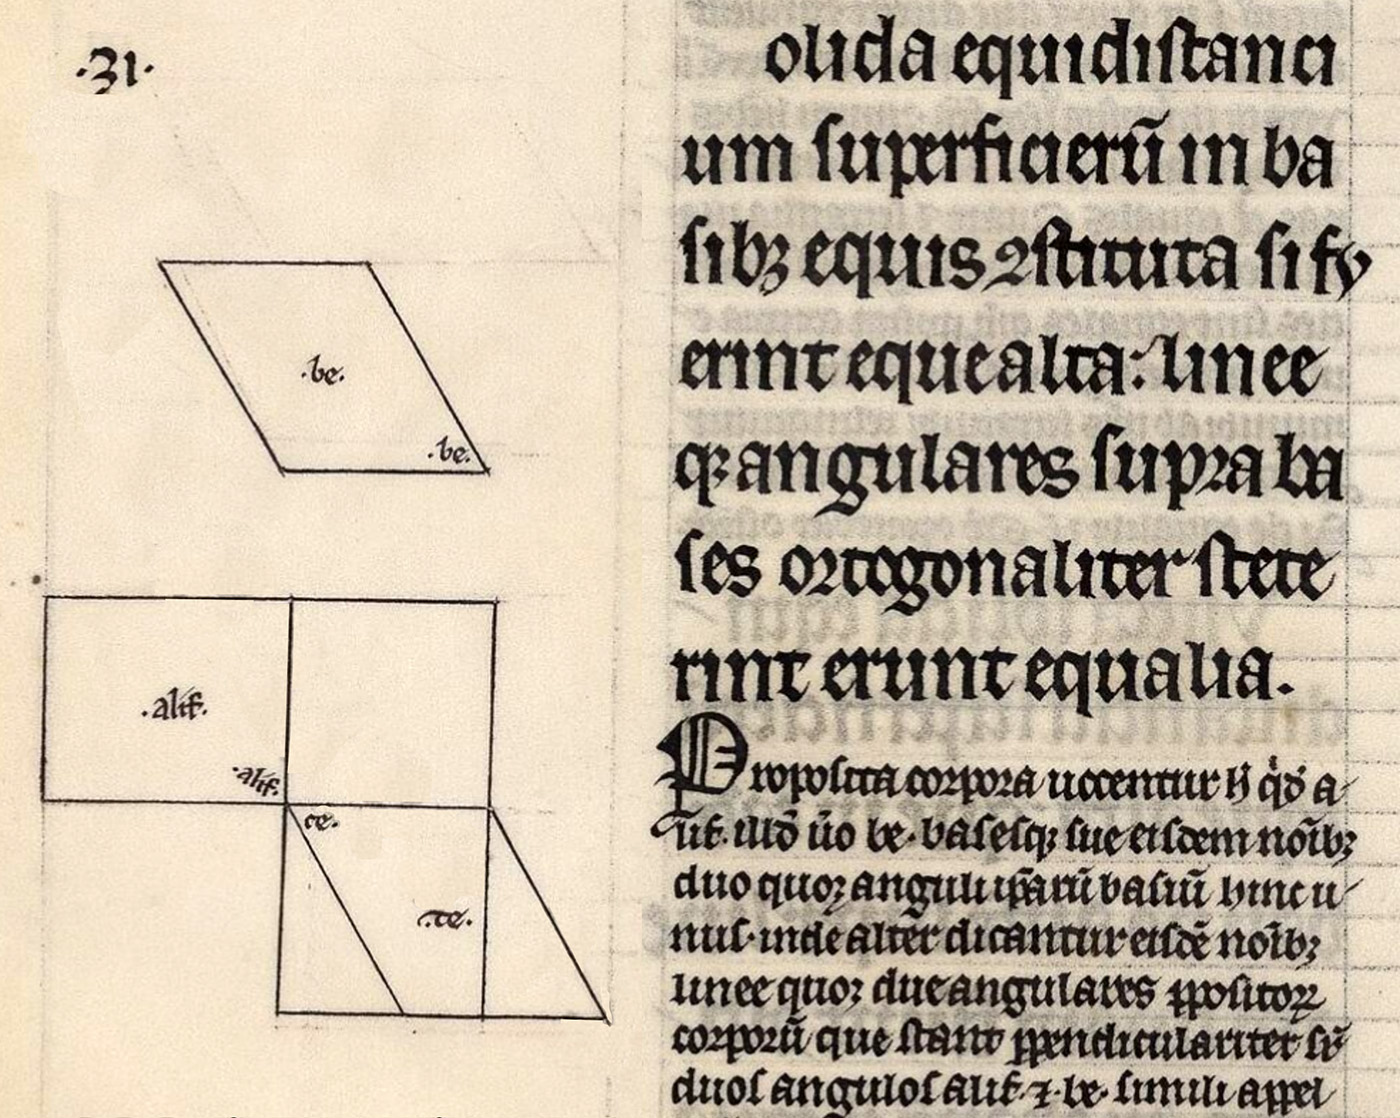 .31.
.be.
.be.
.alif.
.alif.
.ce.
.te.
olida equidiſtanci
um ſuperficierū in ba
ſibꝫ equis ꝯſtituta ſi fu
erint eque alta: linee
qꝫ angulares ſupra ba
ſes ortogonaliter ſtete
rint erunt equalia.
Propoſita corpora uocentur h̄ q̇d a
lif. illđ ũo be. baſeſqꝫ ſue eiſdem noībꝫ
duo quoꝝ anguli ipſarū baſiū hinc u
nuſ. inde alter dicantur eiſdē noībꝫ
linee quoꝫ due angulares ꝓpoſitoꝝ
corporū que ſtant ꝑpendiculariter ſr̄
duoſ anguloſ alif. ⁊. be. ſimili appel